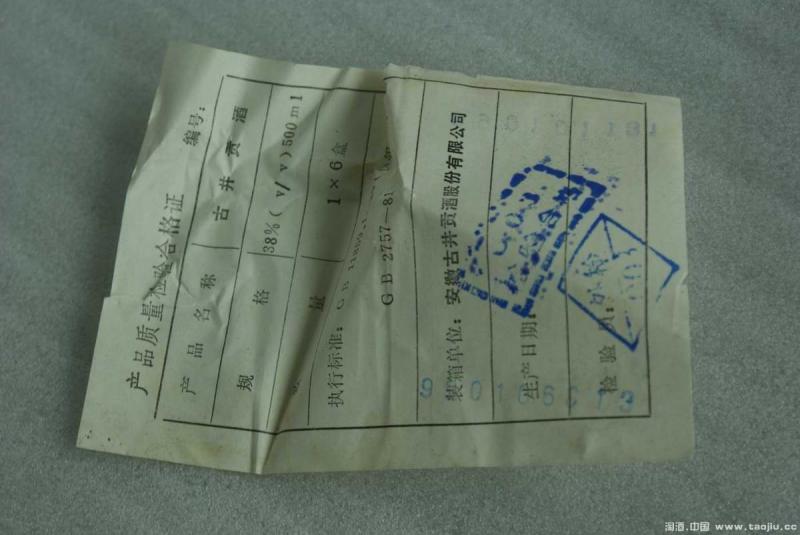 产品质量检验合格证
编号：
产品名称 古井贡酒
规格 38%(v/v)500ml
量 1×6盒
执行标准：GB
GB 2757—81
装箱单位：安徽古井贡酒股份有限公司
生产日期：
检验员：
淘酒.中国 www.taojiu.cc